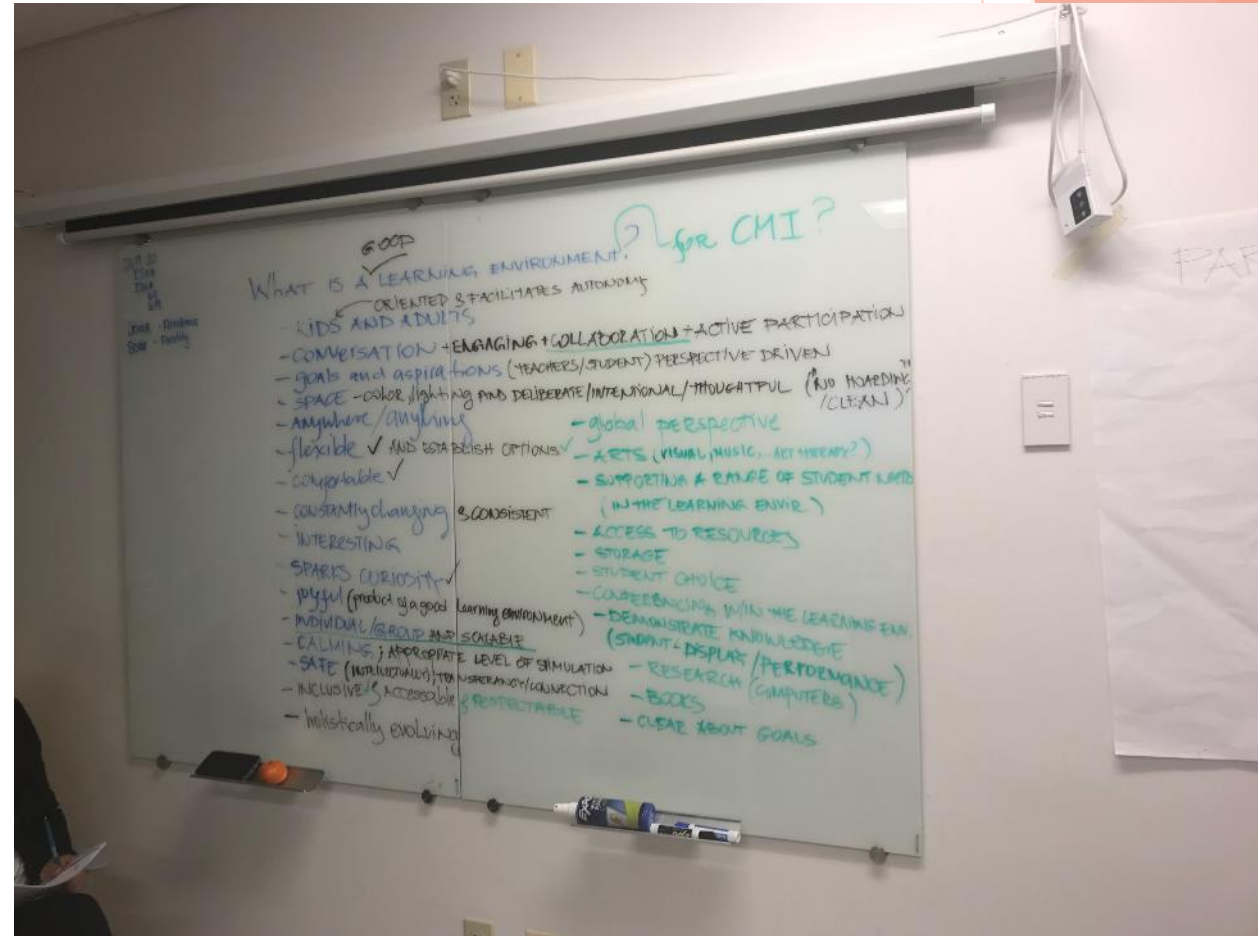 GOOD
WHAT IS A LEARNING ENVIRONMENT? for CMI?
ORIENTED & FACILITATES AUTONOMY
- KIDS AND ADULTS
- CONVERSATION + ENGAGING + COLLABORATION + ACTIVE PARTICIPATION
- goals and aspirations (TEACHERS/STUDENT) PERSPECTIVE DRIVEN
- SPACE - color, lighting AND DELIBERATE/INTENTIONAL/THOUGHTFUL ("NO HOARDING"
/CLEAN)
- Anywhere/anything
- flexible ✓ AND ESTABLISH OPTIONS ✓
- comfortable ✓
- constantly changing & CONSISTENT
- INTERESTING
SPARKS CURIOSITY ✓
- joyful (product of a good learning environment)
- INDIVIDUAL/GROUP AND SCALABLE
- CALMING; APPROPRIATE LEVEL OF STIMULATION
- SAFE (INTELLECTUALLY); TRANSPERANCY/CONNECTION
- INCLUSIVE & Accessable & RESPECTABLE
- holistically evolving
- global perspective
- ARTS (VISUAL, MUSIC, ART THERAPY?)
- SUPPORTING A RANGE OF STUDENT NEEDS
(IN THE LEARNING ENVIR.)
- ACCESS TO RESOURCES
- STORAGE
- STUDENT CHOICE
- CONFERENCING W/IN THE LEARNING ENV.
- DEMONSTRATE KNOWLEDGE
(STUDENT - DISPLAY/PERFORMANCE)
- RESEARCH (COMPUTERS)
- BOOKS
- CLEAR ABOUT GOALS
PAR
EXPO